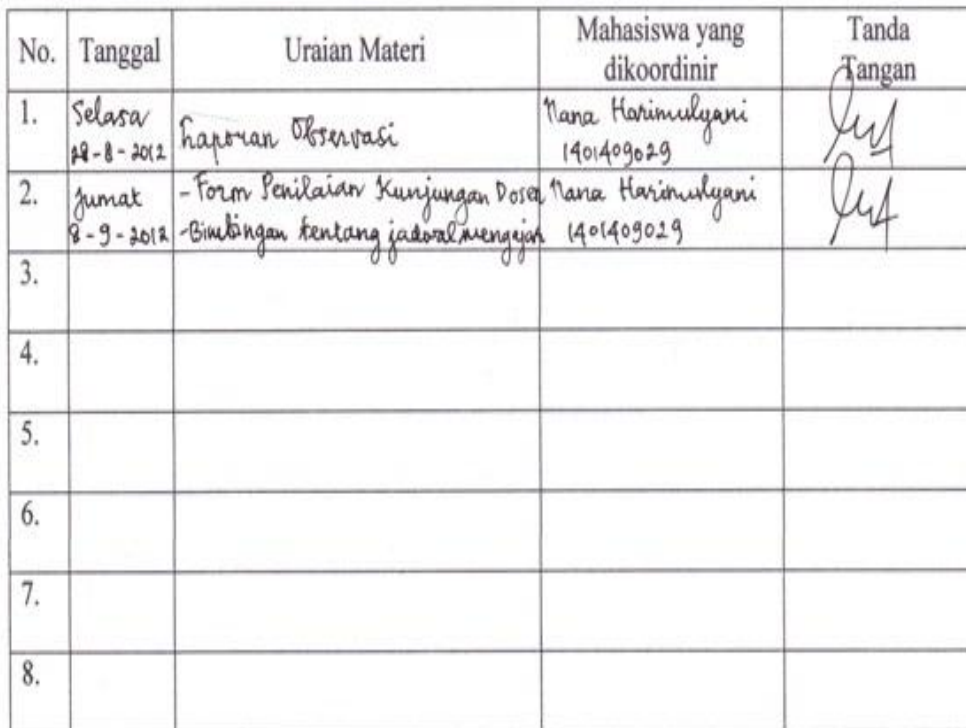 No. Tanggal Uraian Materi Mahasiswa yang dikoordinir Tanda Tangan
1. Selasa 28-8-2012 Laporan Observasi Nana Harimulyani 1401409029
2. Jumat 8-9-2012 - Form Penilaian Kunjungan Dosen - Bimbingan tentang jadwal mengajar Nana Harimulyani 1401409029
3.
4.
5.
6.
7.
8.